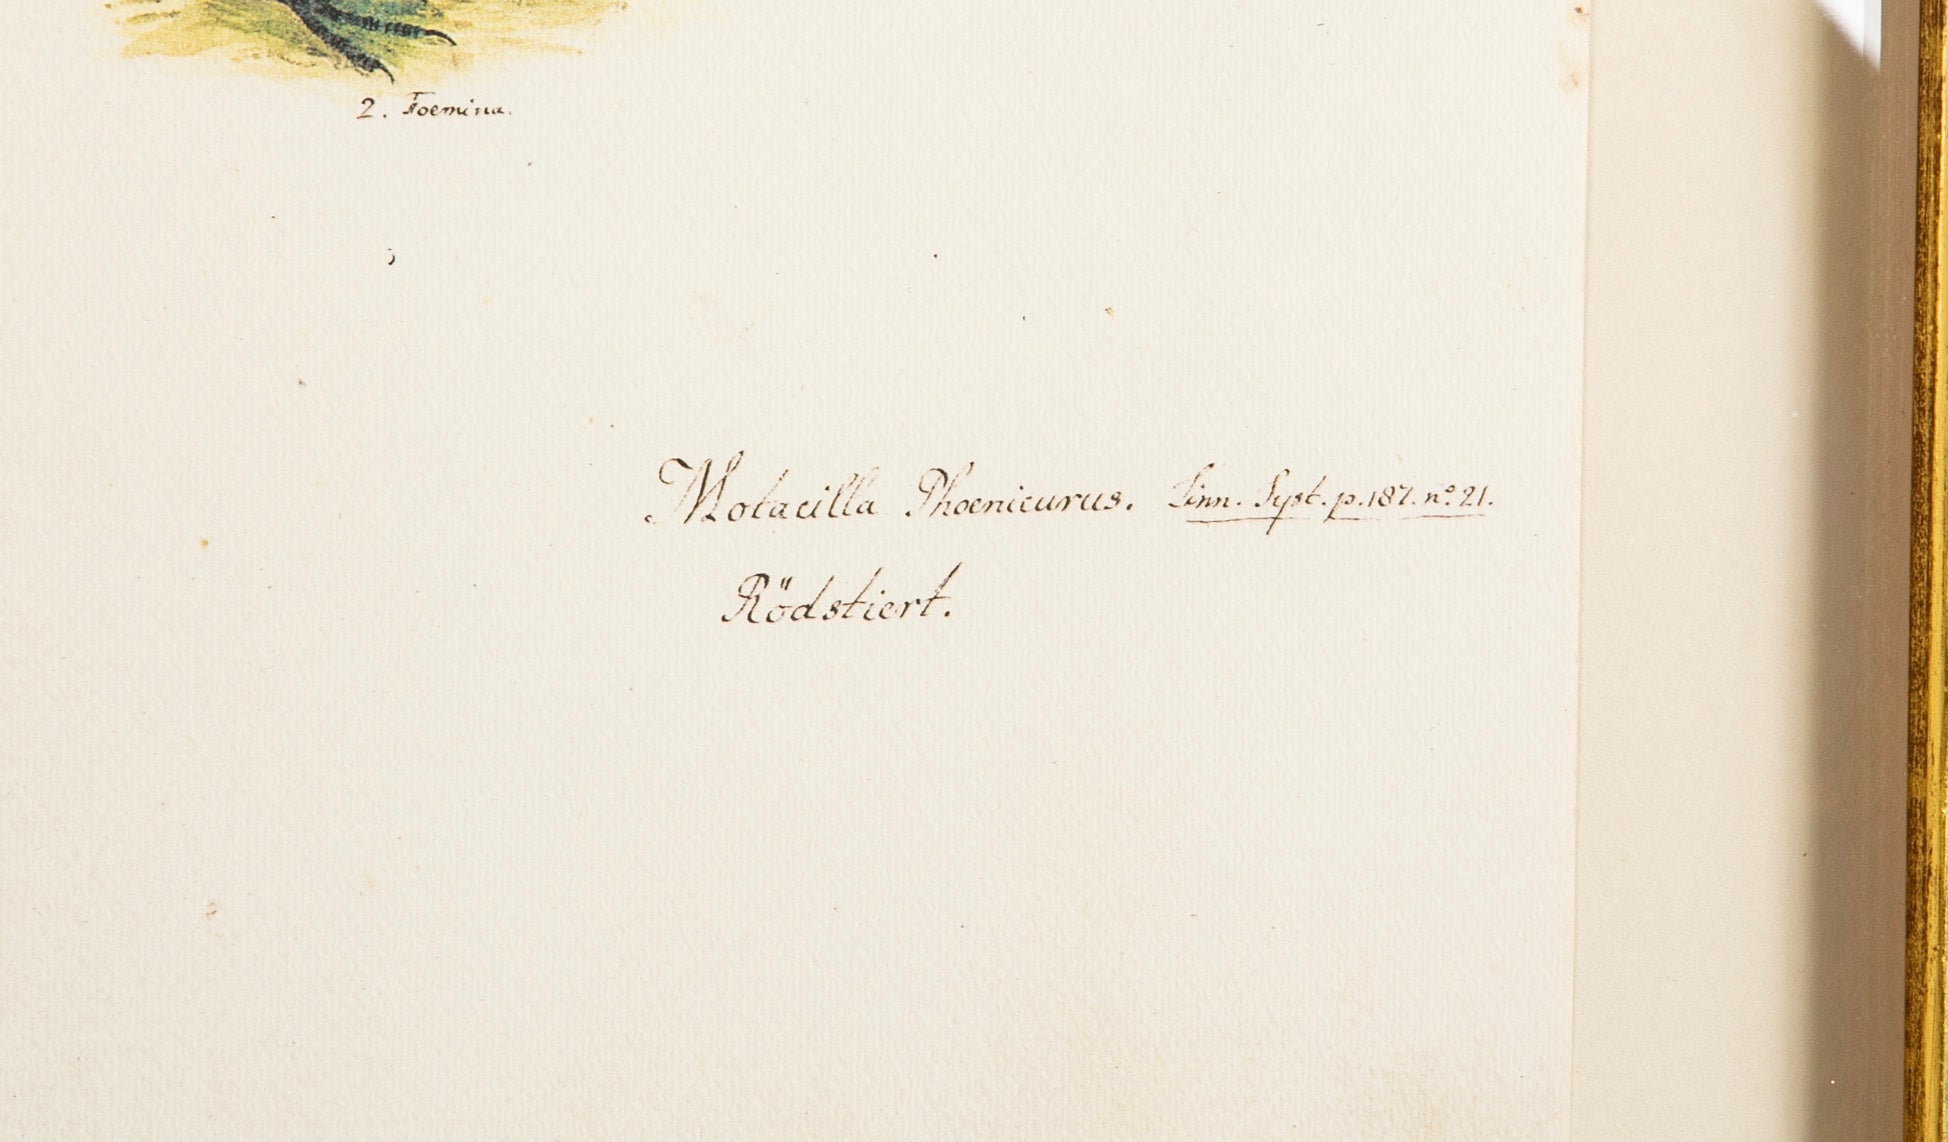 2. Foemina.
Motacilla Phoenicurus. Linn. Syst. p. 187. nº 21.
Rödstiert.